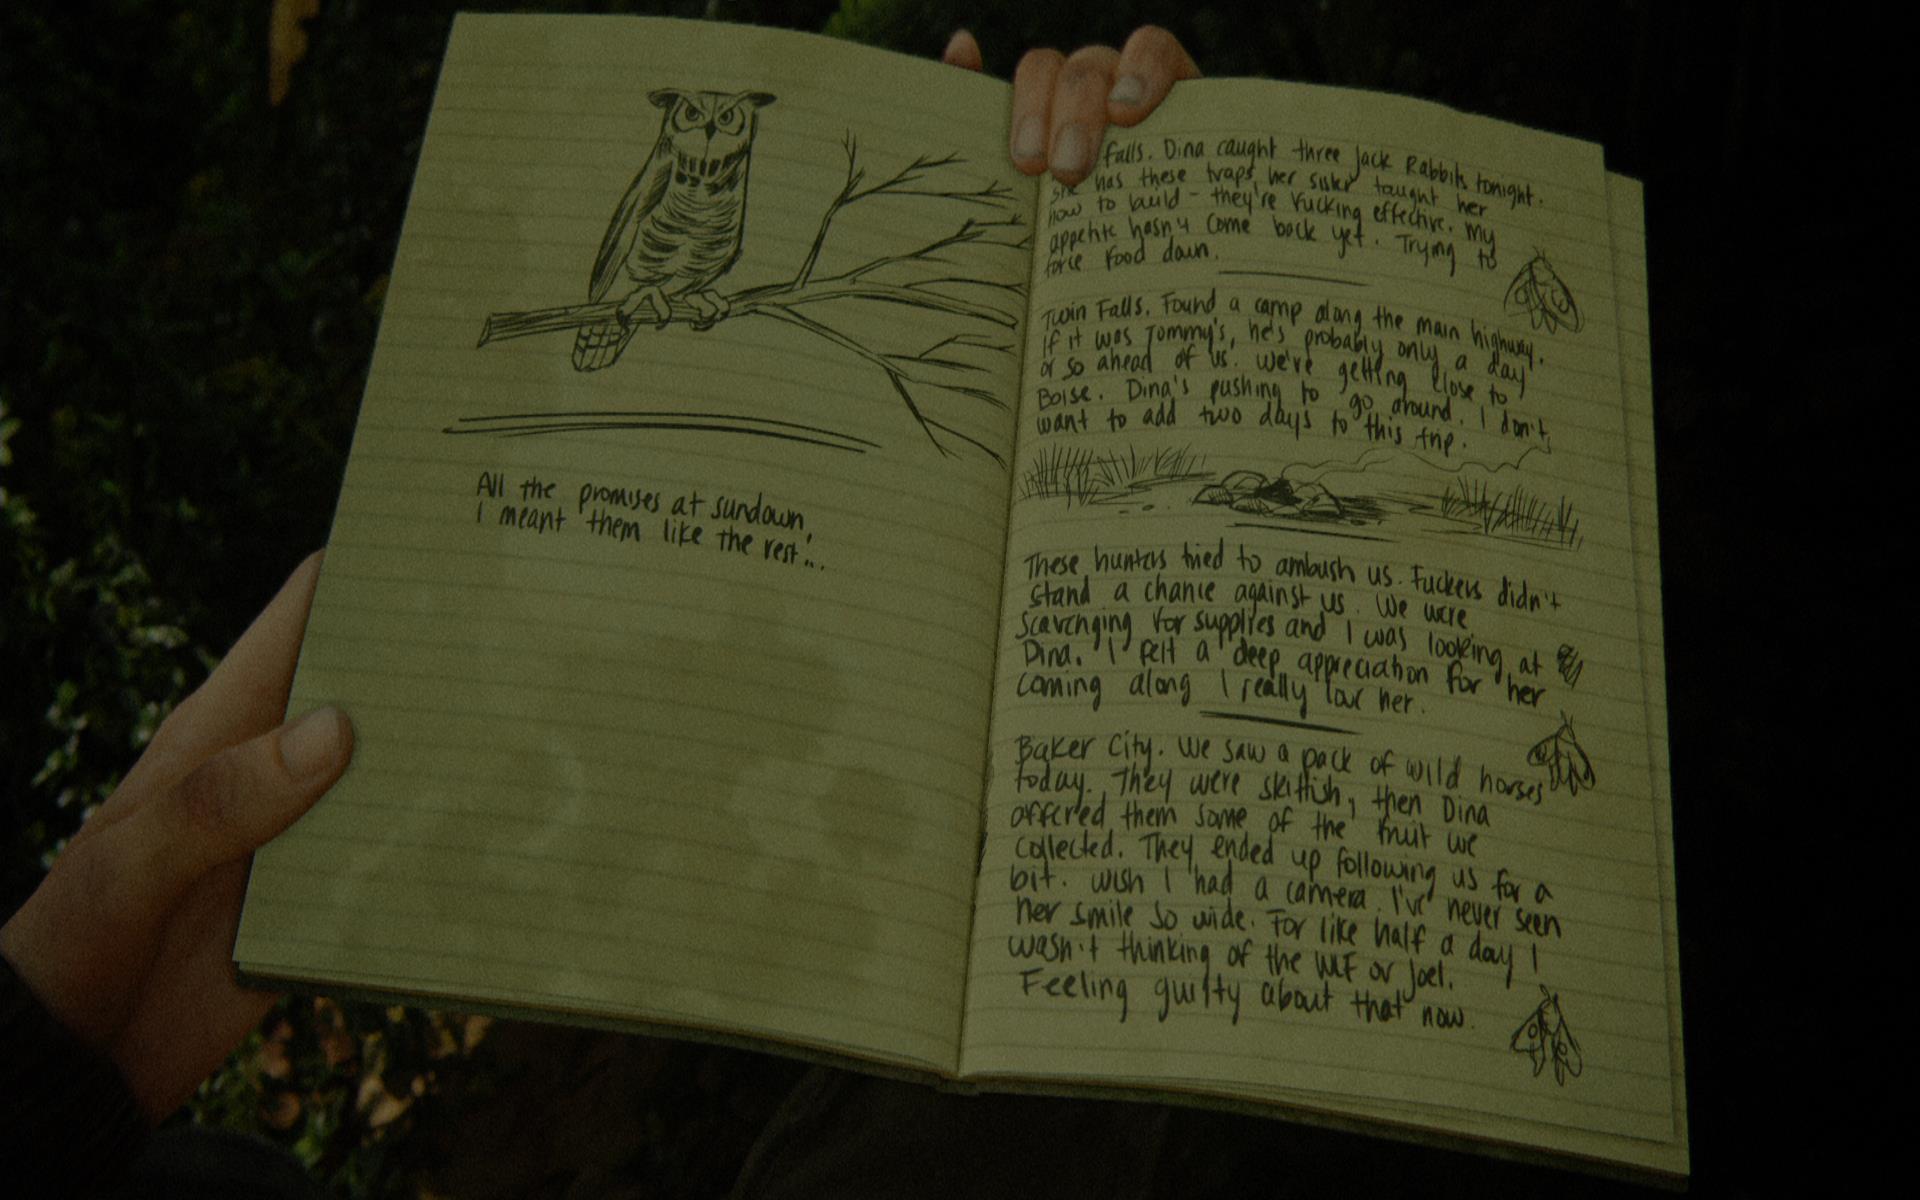 All the promises at sundown,
I meant them like the rest...
falls. Dina caught three Jack Rabbits tonight.
she has these traps her sister taught her
how to build - they're fucking effective. My
appetite hasn't come back yet. Trying to
force food down.
Twin Falls. Found a camp along the main highway.
If it was Tommy's, he's probably only a day
or so ahead of us. We're getting close to
Boise. Dina's pushing to go around. I don't
want to add two days to this trip.
These hunters tried to ambush us. Fuckers didn't
stand a chance against us. We were
scavenging for supplies and I was looking at
Dina. I felt a deep appreciation for her
coming along I really love her.
Baker City. We saw a pack of wild horses
today. They were skittish, then Dina
offered them some of the fruit we
collected. They ended up following us for a
bit. Wish I had a camera. I've never seen
her smile so wide. For like half a day I
wasn't thinking of the WLF or Joel.
Feeling guilty about that now.